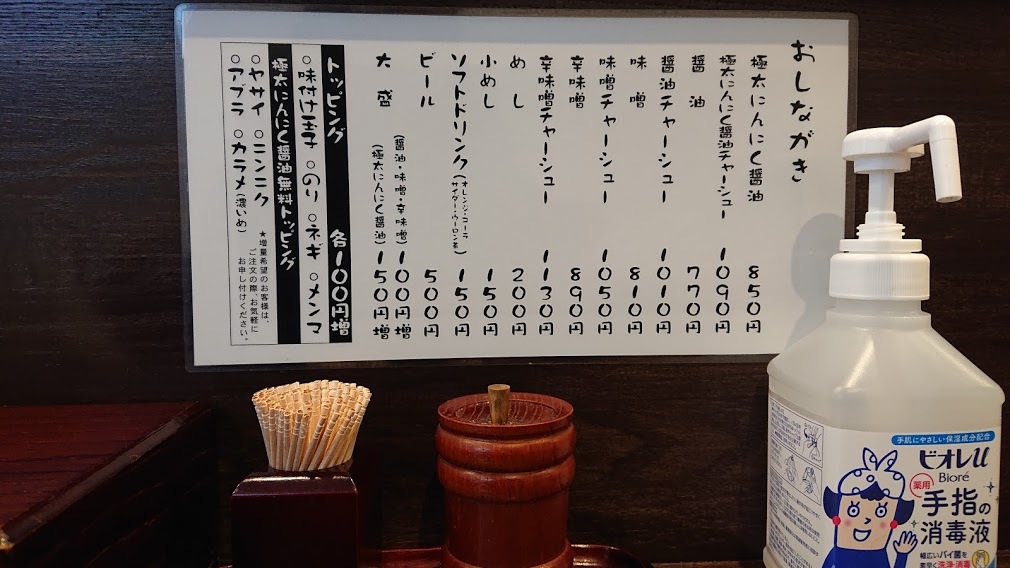 おしながき
極太にんにく醤油 850円
極太にんにく醤油チャーシュー 1090円
醤油 770円
醤油チャーシュー 1010円
味噌 810円
味噌チャーシュー 1050円
辛味噌 890円
辛味噌チャーシュー 1130円
めし 200円
小めし 150円
ソフトドリンク(オレンジ・コーラ サイダー・ウーロン茶) 150円
ビール 500円
大盛 (醤油・味噌・辛味噌) 100円増
(極太にんにく醤油) 150円増
トッピング 各100円増
○味付け玉子 ○のり ○ネギ ○メンマ
極太にんにく醤油無料トッピング
○ヤサイ ○ニンニク
○アブラ ○カラメ(濃いめ)
★増量希望のお客様は、
ご注文の際、お気軽に
お申し付けください。
手肌にやさしい保湿成分配合
ビオレu
Bioré
薬用
手指の
消毒液
幅広いバイ菌を
素早く洗浄・消毒